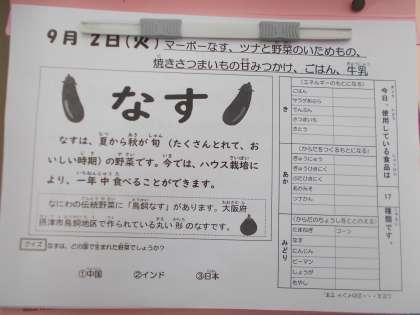 9月 2日(火)
マーボーなす、ツナと野菜のいためもの、
焼きさつまいもの甘みつかけ、ごはん、牛乳
なす
なすは、夏から秋が旬（たくさんとれて、お
いしい時期）の野菜です。今では、ハウス栽培に
より、一年中食べることができます。
なにわの伝統野菜に「鳥飼なす」があります。大阪府
摂津市鳥飼地区で作られている丸い形のなすです。
クイズ
なすは、どの国で生まれた野菜でしょうか？
①中国 ②インド ③日本
今日、使用している食品は
17
種類です。
き
(エネルギーのもとになる)
ごはん
サラダあぶら
でんぷん
さつまいも
さとう
あか
(からだをつくるもとになる)
ぎゅうにゅう
ぎゅうひきにく
ぶたひきにく
あかみそ
ツナかん
みどり
(からだのちょうしをととのえる)
たまねぎ
コーン
なす
にんじん
ピーマン
しょうが
もやし